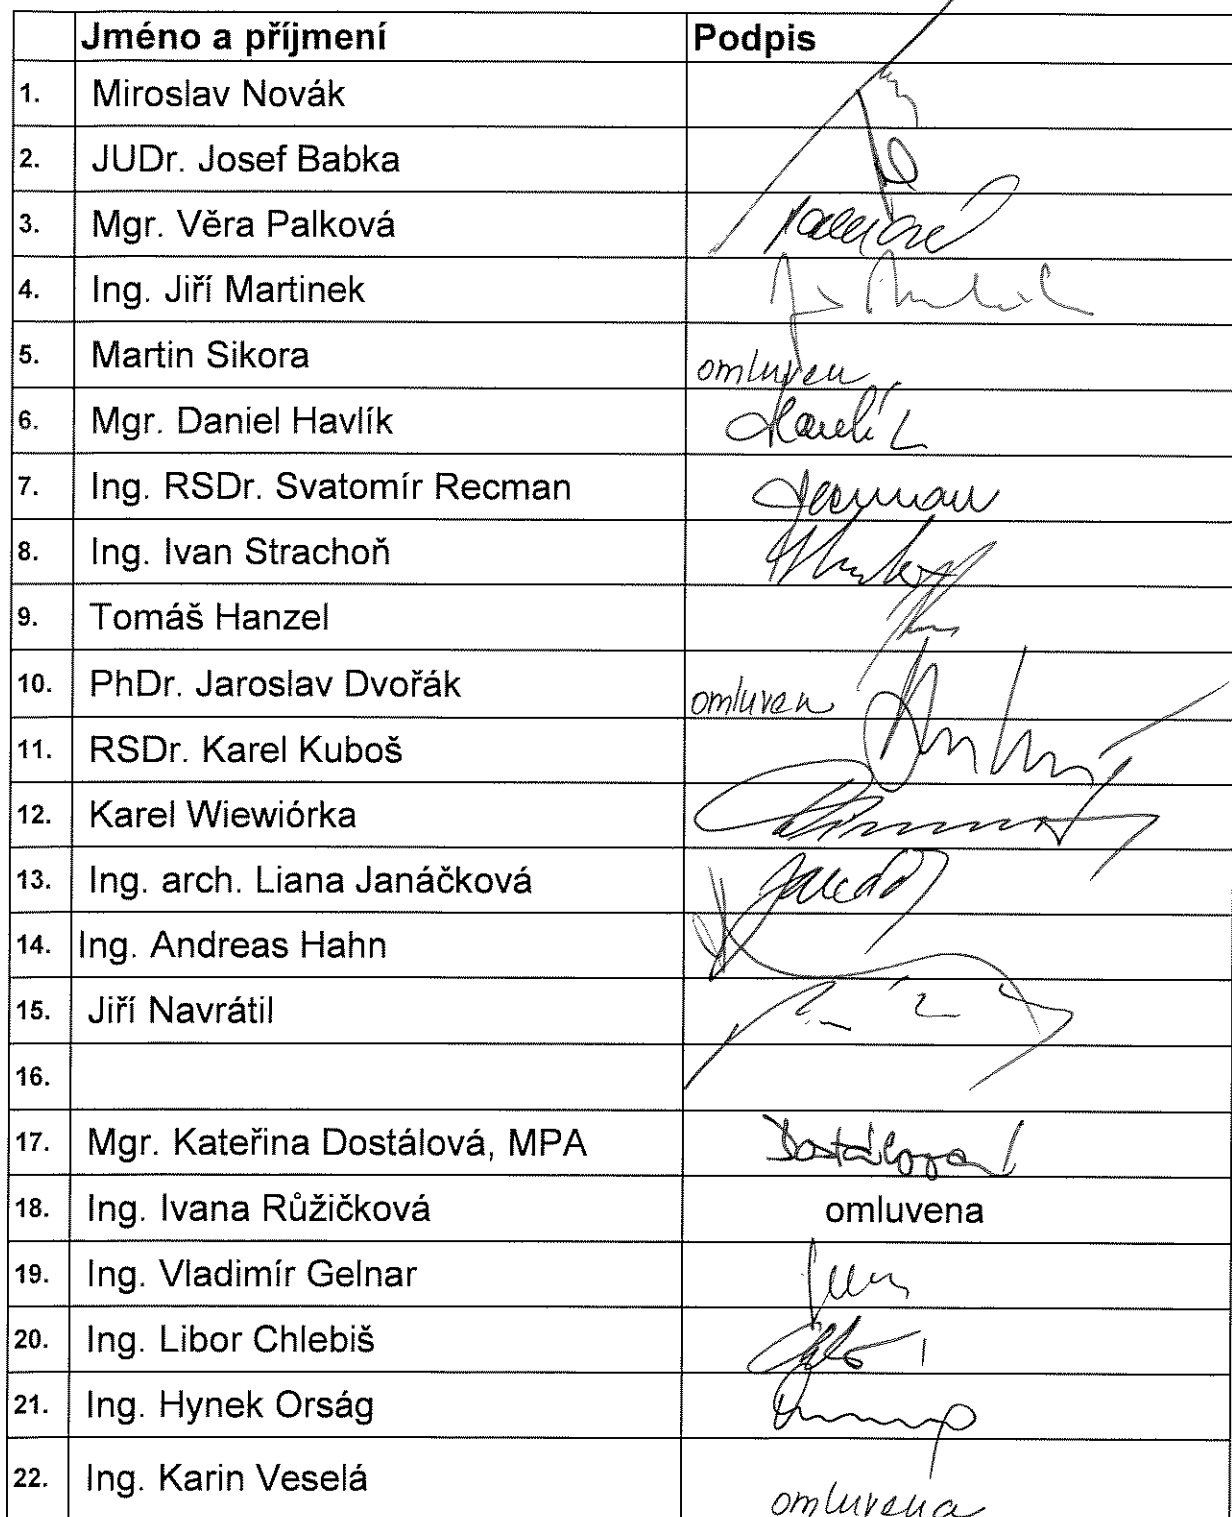 Jméno a příjmení Podpis
1. Miroslav Novák
2. JUDr. Josef Babka
3. Mgr. Věra Palková
4. Ing. Jiří Martinek
5. Martin Sikora omluven
6. Mgr. Daniel Havlík Havlík
7. Ing. RSDr. Svatomír Recman Recman
8. Ing. Ivan Strachoň
9. Tomáš Hanzel
10. PhDr. Jaroslav Dvořák omluven
11. RSDr. Karel Kuboš
12. Karel Wiewiórka
13. Ing. arch. Liana Janáčková
14. Ing. Andreas Hahn
15. Jiří Navrátil
16.
17. Mgr. Kateřina Dostálová, MPA Dostálová
18. Ing. Ivana Růžičková omluvena
19. Ing. Vladimír Gelnar
20. Ing. Libor Chlebiš
21. Ing. Hynek Orság
22. Ing. Karin Veselá omluvena